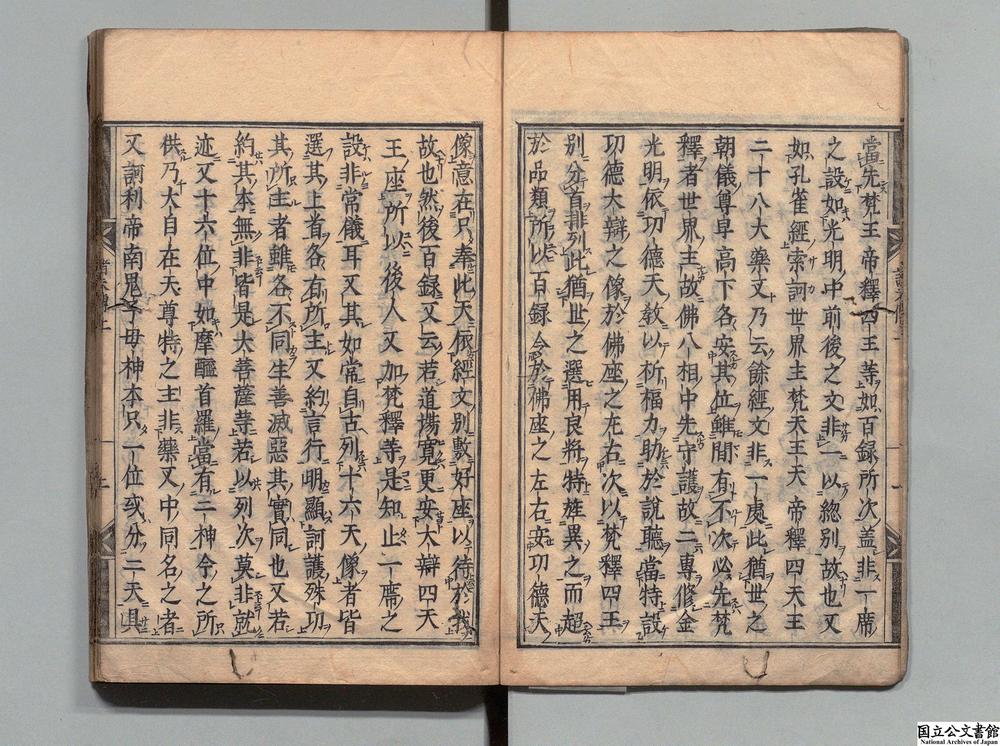 當先梵王帝釋四王等如百録所次盖非一席
之設如光明中前後之文非一以総別故也又
如孔雀經索訶世界主梵天王天帝釋四天王
二十八大藥叉乃云餘經文非一處此猶世之
朝儀尊卑高下各安其位雖間有不次必先梵
釋者世界主故佛八相中先守護故二專修金
光明依功德天教以祈福力助於說聽當特設
功德大辯之像於佛座之左右次以梵釋四王
別分首非列此猶世之選用良將特旌異之而超
於品類所以百録令於佛座之左右安功德天
像意在只奉此天依經文別敷好座以待於我
故也然後百録又云若道場寛更安大辯四天
王座所以後人又加梵釋等是知止一席之
設非常儀耳又其如常自古列十六天像者皆
選其上首各有所主又約言行明顯訶護殊功
其所主者雖各不同生善滅惡其實同也又若
約其本無非皆是大菩薩等若以列次莫非就
迹又十六位中如摩醯首羅當有二神今之所
供乃大自在天尊特之主非藥叉中同名之者
又訶利帝南鬼子母神本只一位或分二天具
国立公文書館
National Archives of Japan